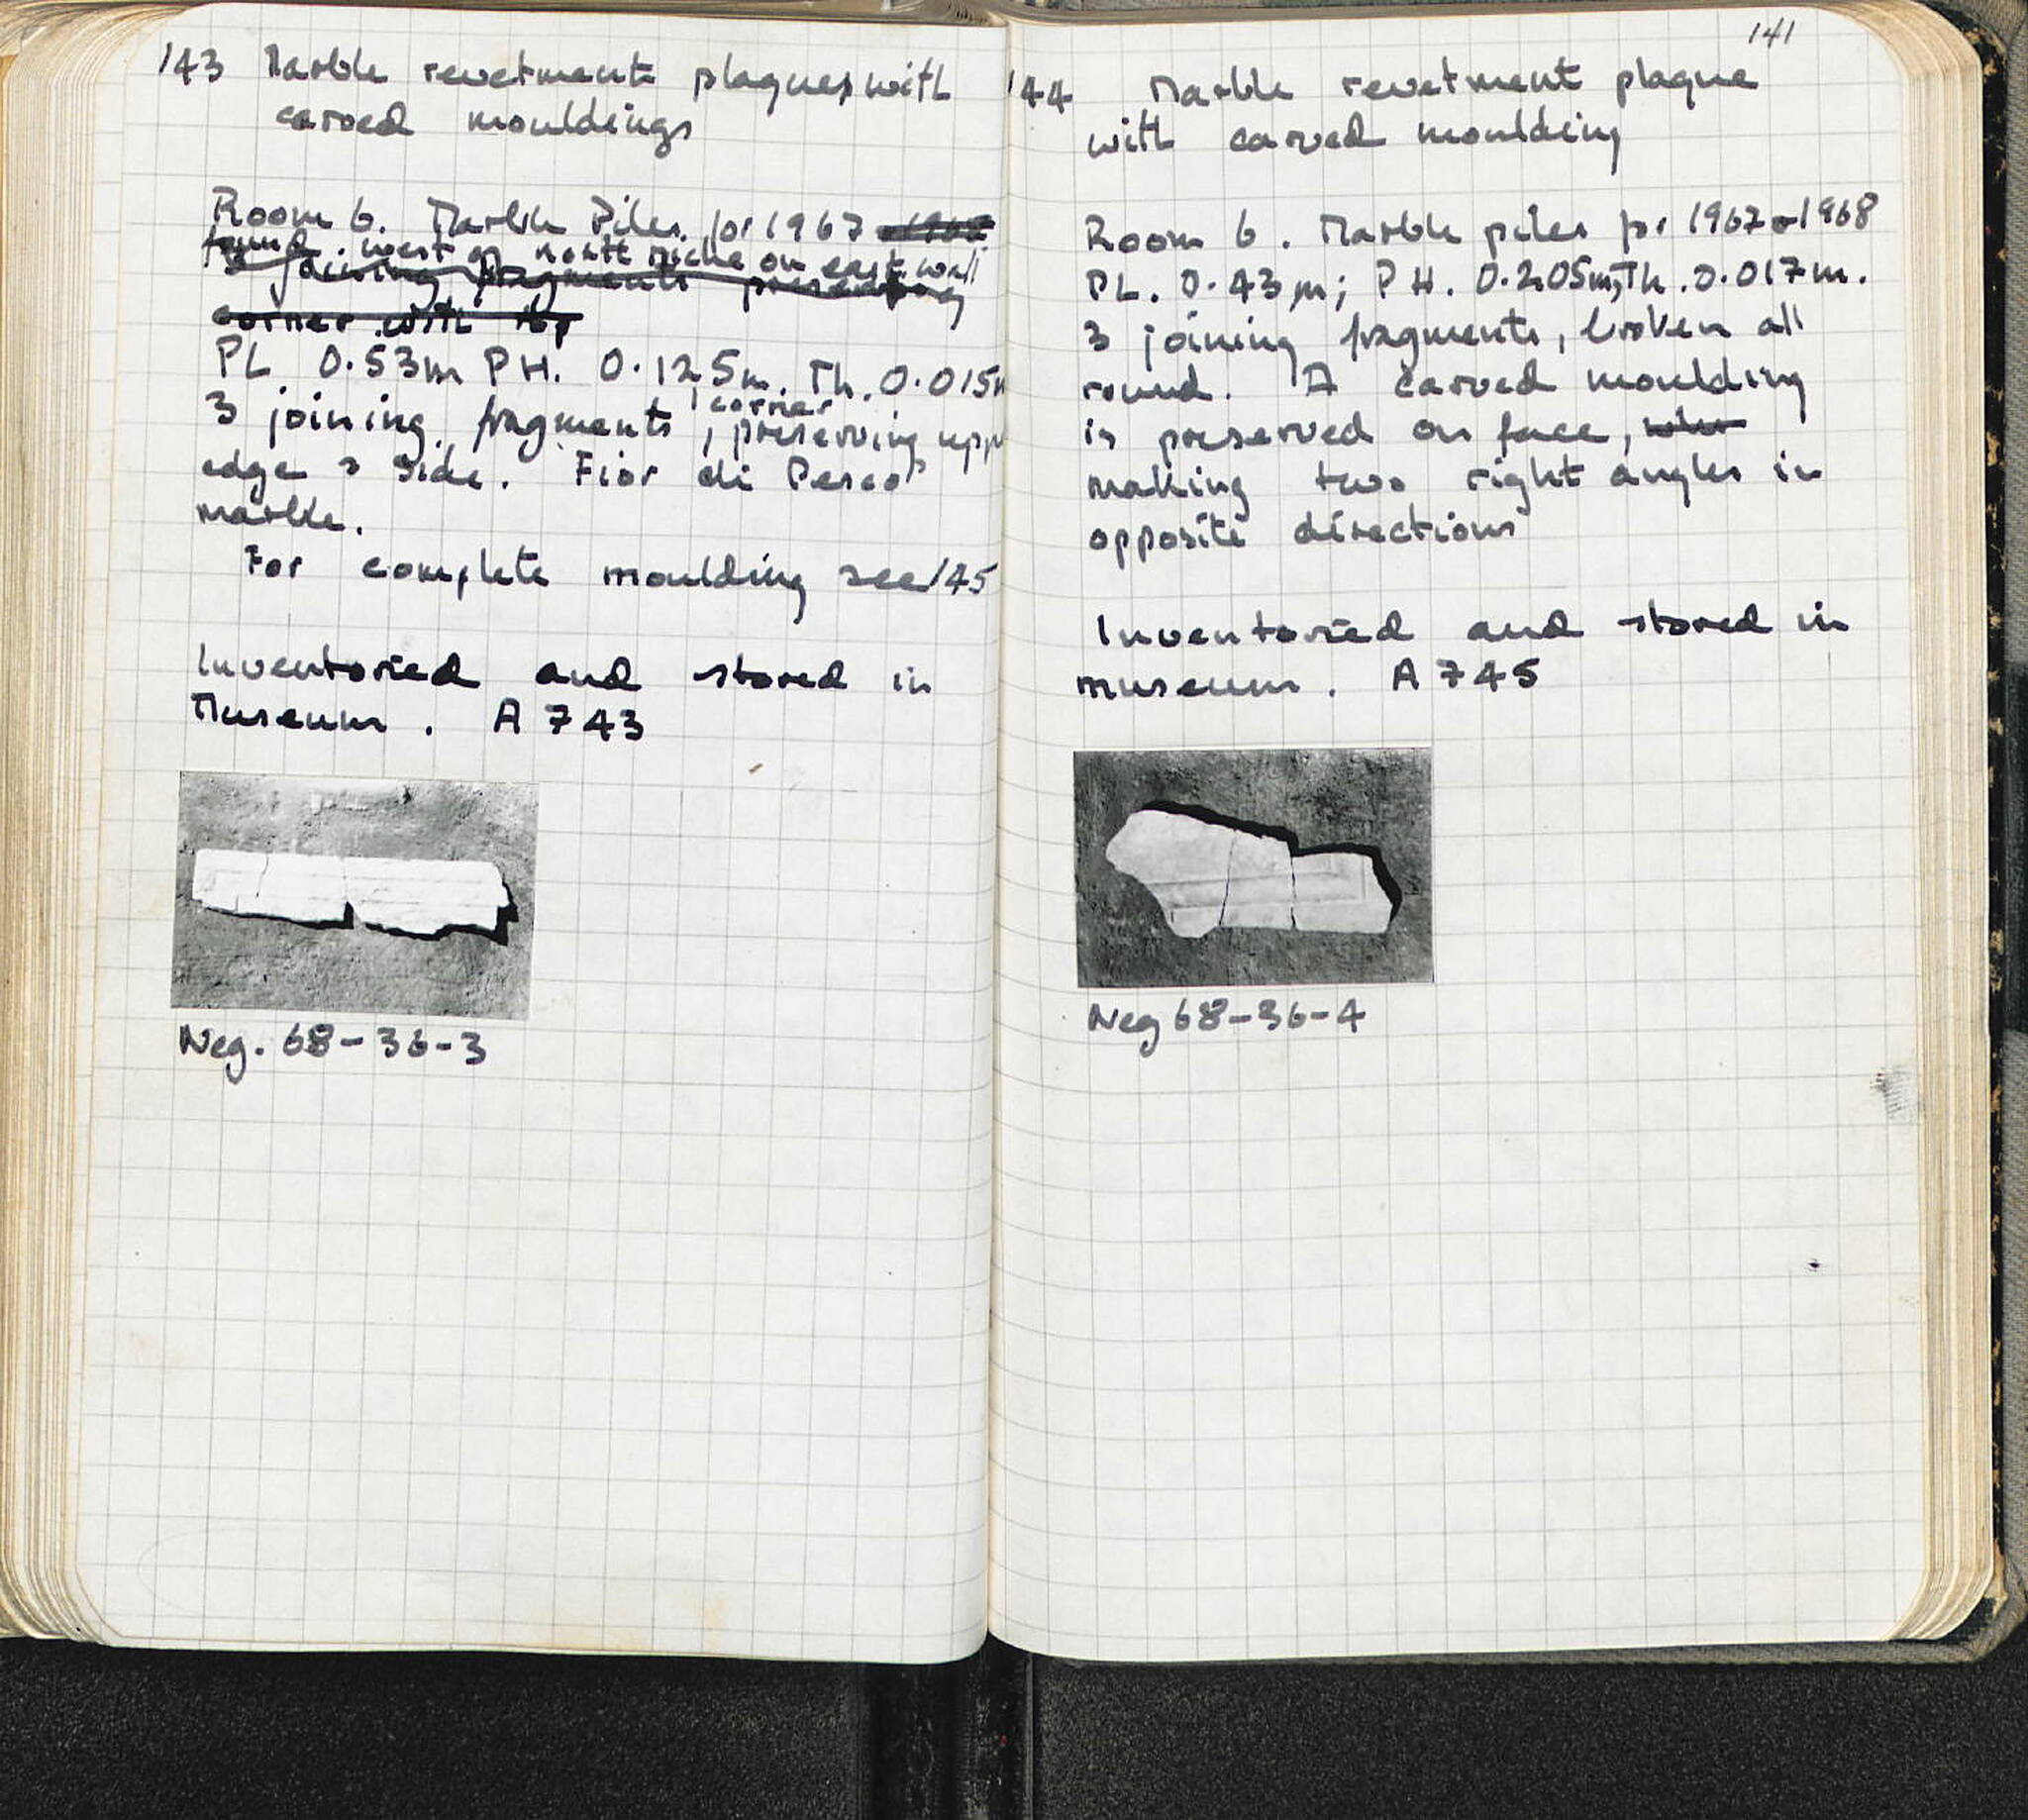 143 Marble revetment plaques with
carved mouldings
Room 6. Marble Piles for 1967 or 1968
found west of north niche on east wall
3 joining fragments preserving
corner with
PL 0.53m PH. 0.125m. Th. 0.015m
corner
3 joining fragments, preserving upper
edge & side. Fior di Pesco
marble.
For complete moulding see 145
Inventoried and stored in
Museum. A 743
Neg. 68-36-3
141
144 Marble revetment plaque
with carved moulding
Room 6. Marble piles for 1967 or 1968
PL. 0.43m; PH. 0.205m; Th. 0.017m.
3 joining fragments, broken all
round. A carved moulding
is preserved on face,
making two right angles in
opposite directions
Inventoried and stored in
museum. A 745
Neg 68-36-4